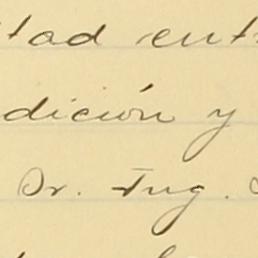 tad entr
dición y
Dr. Ing.